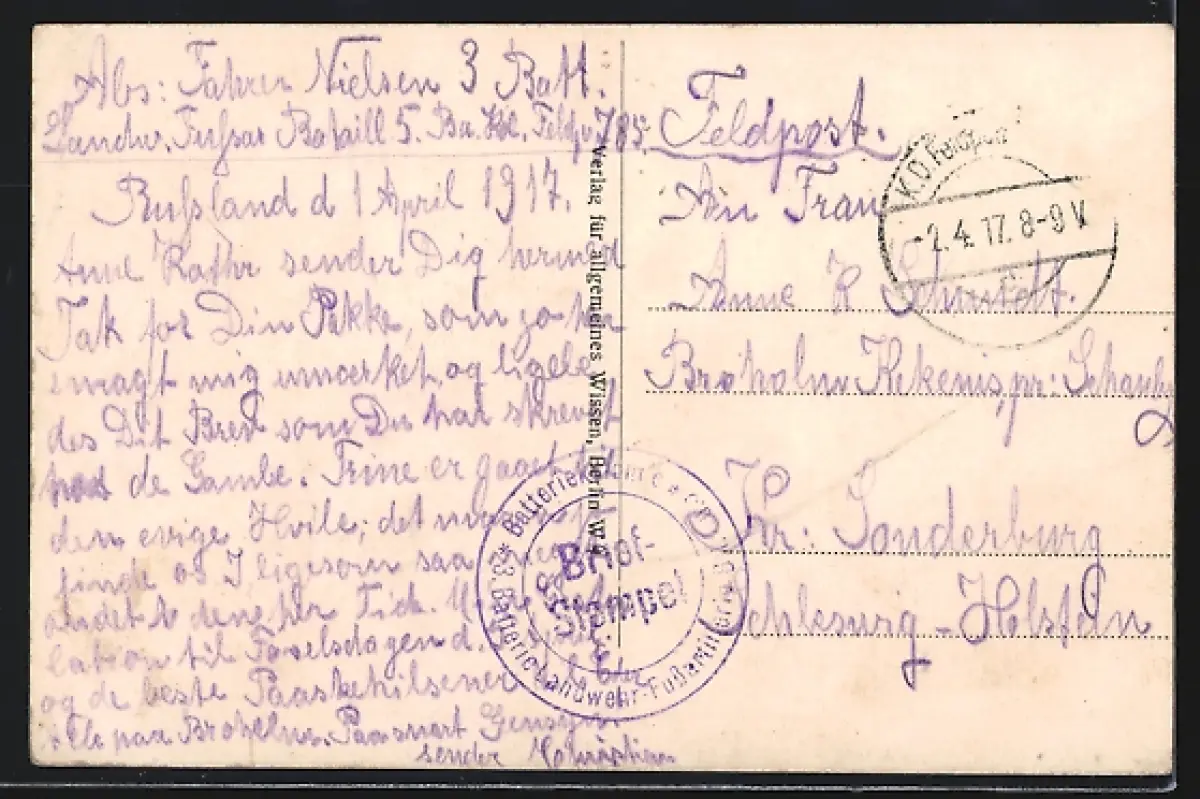 Abs: Fahrer Nielsen 3 Batt.
Landw. Fussar Bataill 5. Ba. Kol. Feldp. 785.
Russland d 1 April 1917.
Anne Kathr sender Dig hermed
Tak for Din Pakke, som jo har
smagt mig umærket, og ligele
des Dit Brev som Du har skrevet
hos de Gamle. Trine er gaaet til
den evige Hvile; det maa
finde os I ligesom saa
andet i denne her Tid.
lation til Fødselsdagen d.
og de beste Paaskehilsener
Alle paa Broholm. Paa snart Gensyn.
sender Christian
Verlag für allgemeines Wissen, Berlin W 9
Feldpost.
An Frau
Anne K Schmidt.
Broholm Kekenis, pr: Schauby
Kr: Sonderburg
Schleswig-Holstein
K.D. Feldpost
-2.4.17. 8-9 V
Brief-
Stempel
Batterie Landwehr-Fußartill